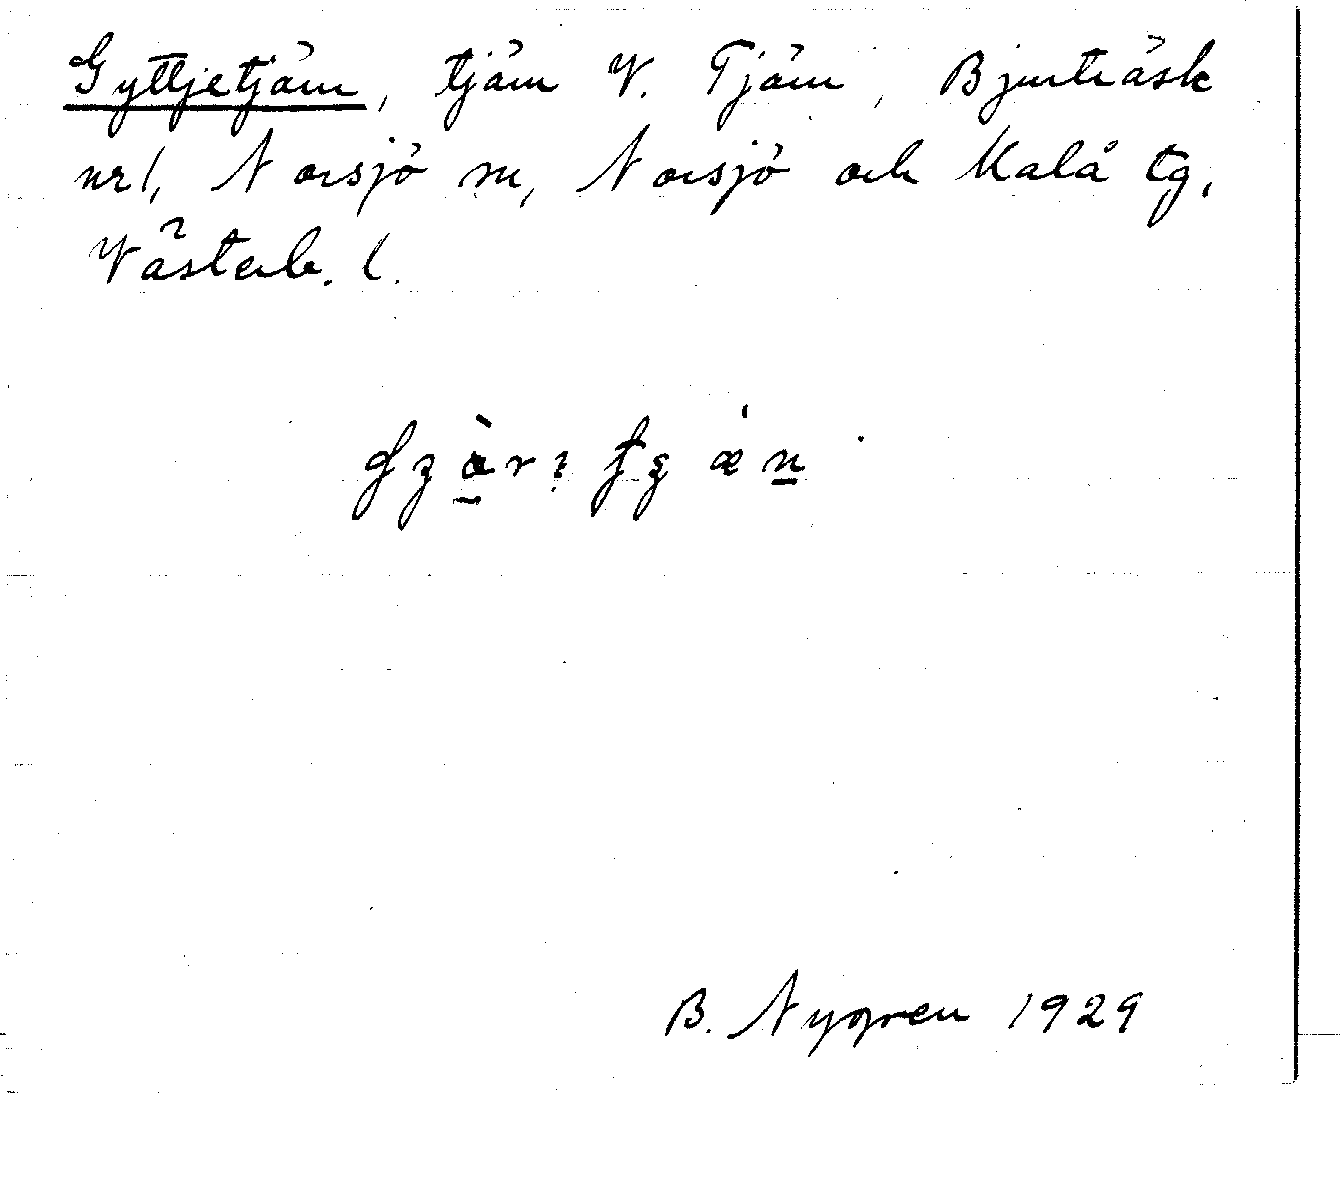 Gyttjetjäm, tjäm V. Tjäm, Bjurträsk
nr 1, Norsjö sn, Norsjö och Malå tg,
Västerb. l.
B. Nygren 1929